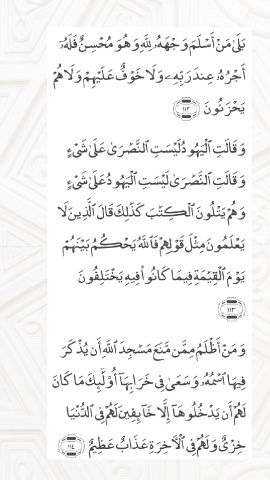 بَلَىٰ مَنْ أَسْلَمَ وَجْهَهُۥ لِلَّهِ وَهُوَ مُحْسِنٌ فَلَهُۥٓ
أَجْرُهُۥ عِندَ رَبِّهِۦ وَلَا خَوْفٌ عَلَيْهِمْ وَلَا هُمْ
يَحْزَنُونَ ١١٢
وَقَالَتِ ٱلْيَهُودُ لَيْسَتِ ٱلنَّصَٰرَىٰ عَلَىٰ شَىْءٍ
وَقَالَتِ ٱلنَّصَٰرَىٰ لَيْسَتِ ٱلْيَهُودُ عَلَىٰ شَىْءٍ
وَهُمْ يَتْلُونَ ٱلْكِتَٰبَ كَذَٰلِكَ قَالَ ٱلَّذِينَ لَا
يَعْلَمُونَ مِثْلَ قَوْلِهِمْ فَٱللَّهُ يَحْكُمُ بَيْنَهُمْ
يَوْمَ ٱلْقِيَٰمَةِ فِيمَا كَانُوا۟ فِيهِ يَخْتَلِفُونَ
١١٣
وَمَنْ أَظْلَمُ مِمَّن مَّنَعَ مَسَٰجِدَ ٱللَّهِ أَن يُذْكَرَ
فِيهَا ٱسْمُهُۥ وَسَعَىٰ فِى خَرَابِهَآ أُو۟لَٰٓئِكَ مَا كَانَ
لَهُمْ أَن يَدْخُلُوهَآ إِلَّا خَآئِفِينَ لَهُمْ فِى ٱلدُّنْيَا
خِزْىٌ وَلَهُمْ فِى ٱلْءَاخِرَةِ عَذَابٌ عَظِيمٌ ١١٤